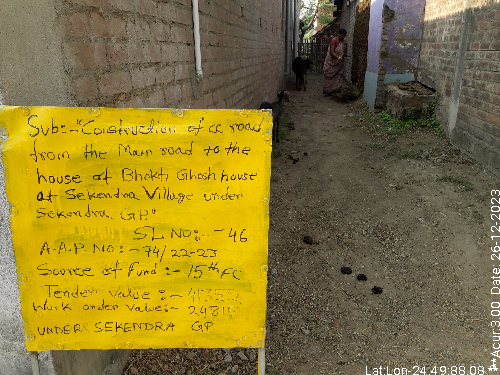 Sub:- "Construction of cc road
from the Main road to the
house of Bhakti Ghosh house
at Sekendra Village under
Sekendra GP."
SL NO:- 46
A.A.P. NO:- 74/22-23
Source of Fund :- 15th FC
Tender Value :-
Work order value:-
UNDER SEKENDRA GP
Lat:Lon-24.49:88.08
**Acur:3.00 Date: 26-12-2023